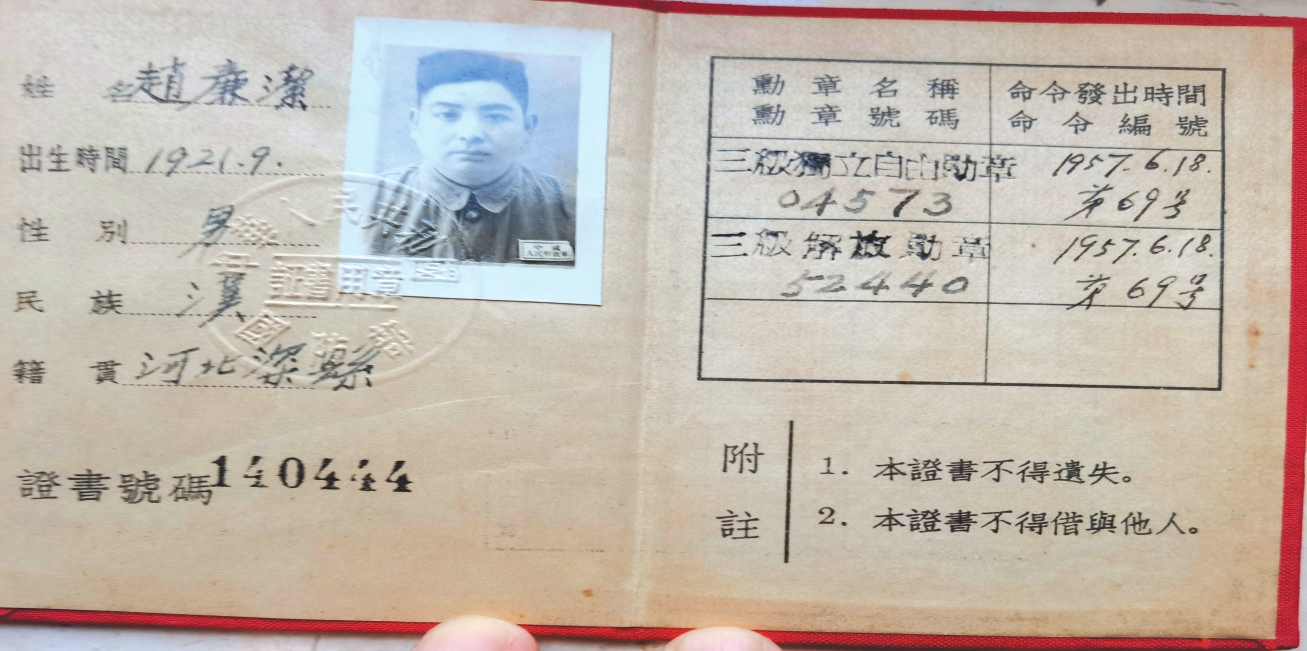 姓 名 趙廉潔
出生時間 1921.9.
性 別 男
民 族 漢
籍 貫 河北深縣
證書號碼 140444
中國
人民解放軍
證書用章
國防部
勳章名稱
勳章號碼
命令發出時間
命令編號
三級獨立自由勳章
1957.6.18.
04573
第69号
三級解放勳章
1957.6.18.
52440
第69号
附註
1. 本證書不得遺失。
2. 本證書不得借與他人。